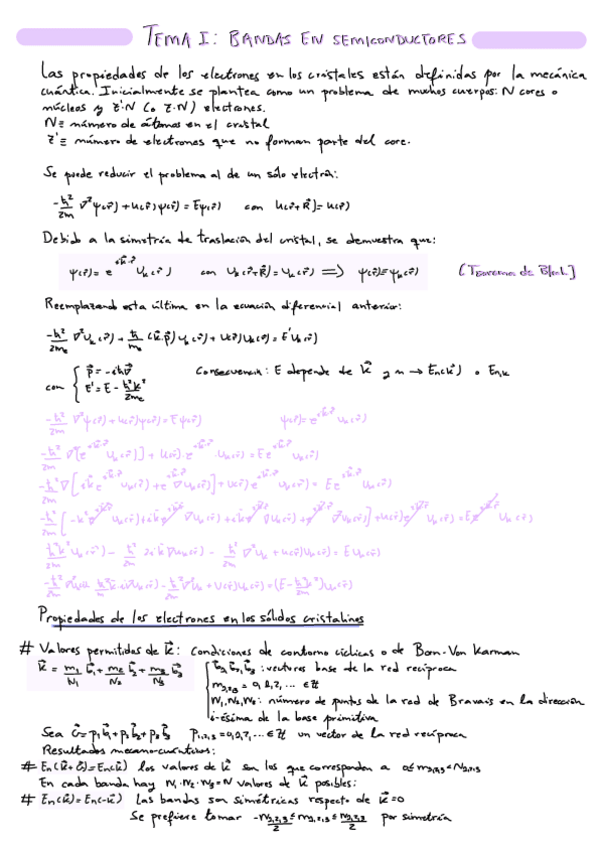 TEMA I: BANDAS EN SEMICONDUCTORES
Las propiedades de los electrones en los cristales están definidas por la mecánica
cuántica. Inicialmente se plantea como un problema de muchos cuerpos: N cores o
núcleos y z'·N (o z·N) electrones.
N ≡ número de átomos en el cristal
z' ≡ número de electrones que no forman parte del core.
Se puede reducir el problema al de un sólo electrón:
-ħ²/2m ∇²ψ(r⃗) + U(r⃗)ψ(r⃗) = Eψ(r⃗) con U(r⃗+R⃗) = U(r⃗)
Debido a la simetría de traslación del cristal, se demuestra que:
ψ(r⃗) = e^{ik⃗·r⃗} u_k(r⃗) con u_k(r⃗+R⃗) = u_k(r⃗) ⟹ ψ(r⃗) ≡ ψ_k(r⃗) [Teorema de Bloch]
Reemplazando esta última en la ecuación diferencial anterior:
-ħ²/2m_e ∇²u_k(r⃗) + ħ/m_e (k⃗·p⃗) u_k(r⃗) + U(r⃗)u_k(r⃗) = E'u_k(r⃗)
con { p⃗ = -iħ∇⃗ Consecuencia: E depende de k⃗ y n → En(k⃗) o En,k
E' = E - ħ²k²/2m_e
-ħ²/2m ∇²ψ(r⃗) + U(r⃗)ψ(r⃗) = Eψ(r⃗) ψ(r⃗) = e^{ik⃗·r⃗} u_k(r⃗)
-ħ²/2m ∇²[e^{ik⃗·r⃗} u_k(r⃗)] + U(r⃗)·e^{ik⃗·r⃗}·u_k(r⃗) = E e^{ik⃗·r⃗} u_k(r⃗)
-ħ²/2m ∇[ik⃗e^{ik⃗·r⃗} u_k(r⃗) + e^{ik⃗·r⃗} ∇u_k(r⃗)] + U(r⃗)e^{ik⃗·r⃗} u_k(r⃗) = E e^{ik⃗·r⃗} u_k(r⃗)
Propiedades de los electrones en los sólidos cristalinos
# Valores permitidos de k⃗: Condiciones de contorno cíclicas o de Born-Von Karman
k⃗ = m₁/N₁ b⃗₁ + m₂/N₂ b⃗₂ + m₃/N₃ b⃗₃ { b⃗₁, b⃗₂, b⃗₃: vectores base de la red recíproca
m₁,₂,₃ = 0, 1, 2, ... ∈ ℤ
N₁, N₂, N₃: número de puntos de la red de Bravais en la dirección
i-ésima de la base primitiva
Sea G⃗ = p₁b⃗₁ + p₂b⃗₂ + p₃b⃗₃ p₁,₂,₃ = 0, 1, 2, ... ∈ ℤ un vector de la red recíproca
Resultados mecano-cuánticos:
# En(k⃗+G⃗) = En(k⃗) los valores de k⃗ son los que corresponden a 0 ≤ m₁,₂,₃ ≤ N₁,₂,₃
En cada banda hay N₁·N₂·N₃ = N valores de k⃗ posibles:
# En(k⃗) = En(-k⃗) Las bandas son simétricas respecto de k⃗ = 0
Se prefiere tomar -N₁,₂,₃/2 ≤ m₁,₂,₃ ≤ N₁,₂,₃/2 por simetría